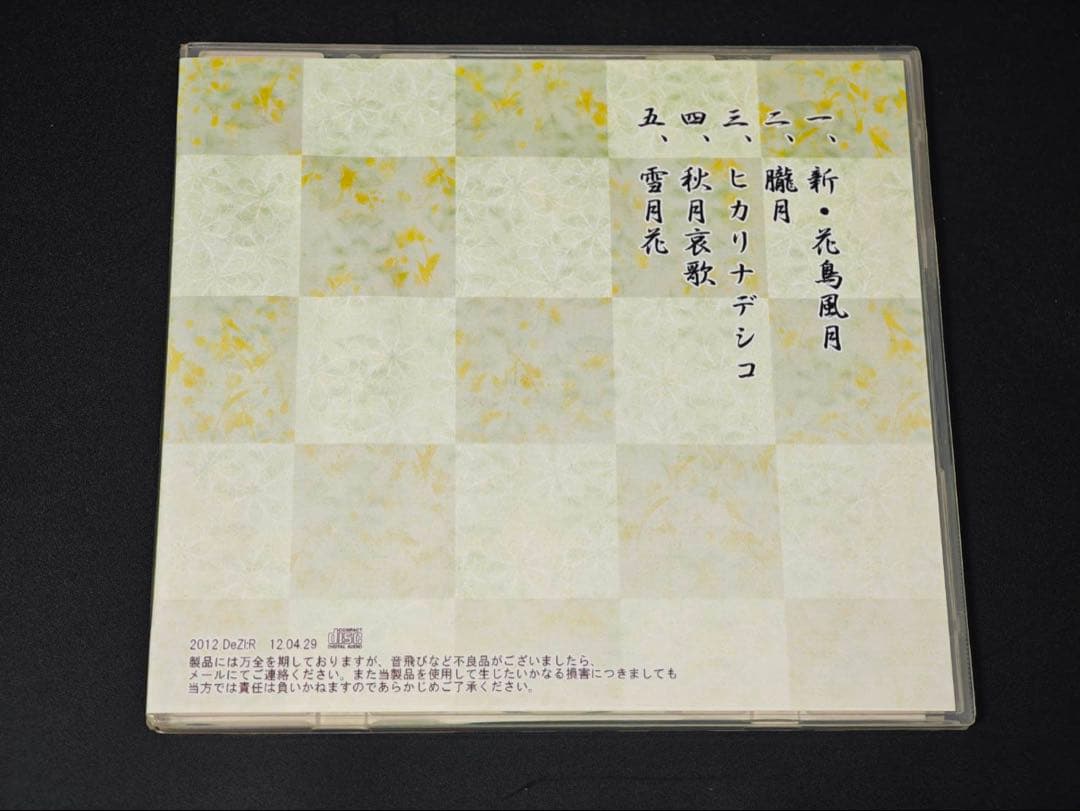 一、新・花鳥風月
二、朧月
三、ヒカリナデシコ
四、秋月哀歌
五、雪月花
2012 DeZI:R 12.04.29 COMPACT disc DIGITAL AUDIO
製品には万全を期しておりますが、音飛びなど不良品がございましたら、
メールにてご連絡ください。また当製品を使用して生じたいかなる損害につきましても
当方では責任は負いかねますのであらかじめご了承ください。